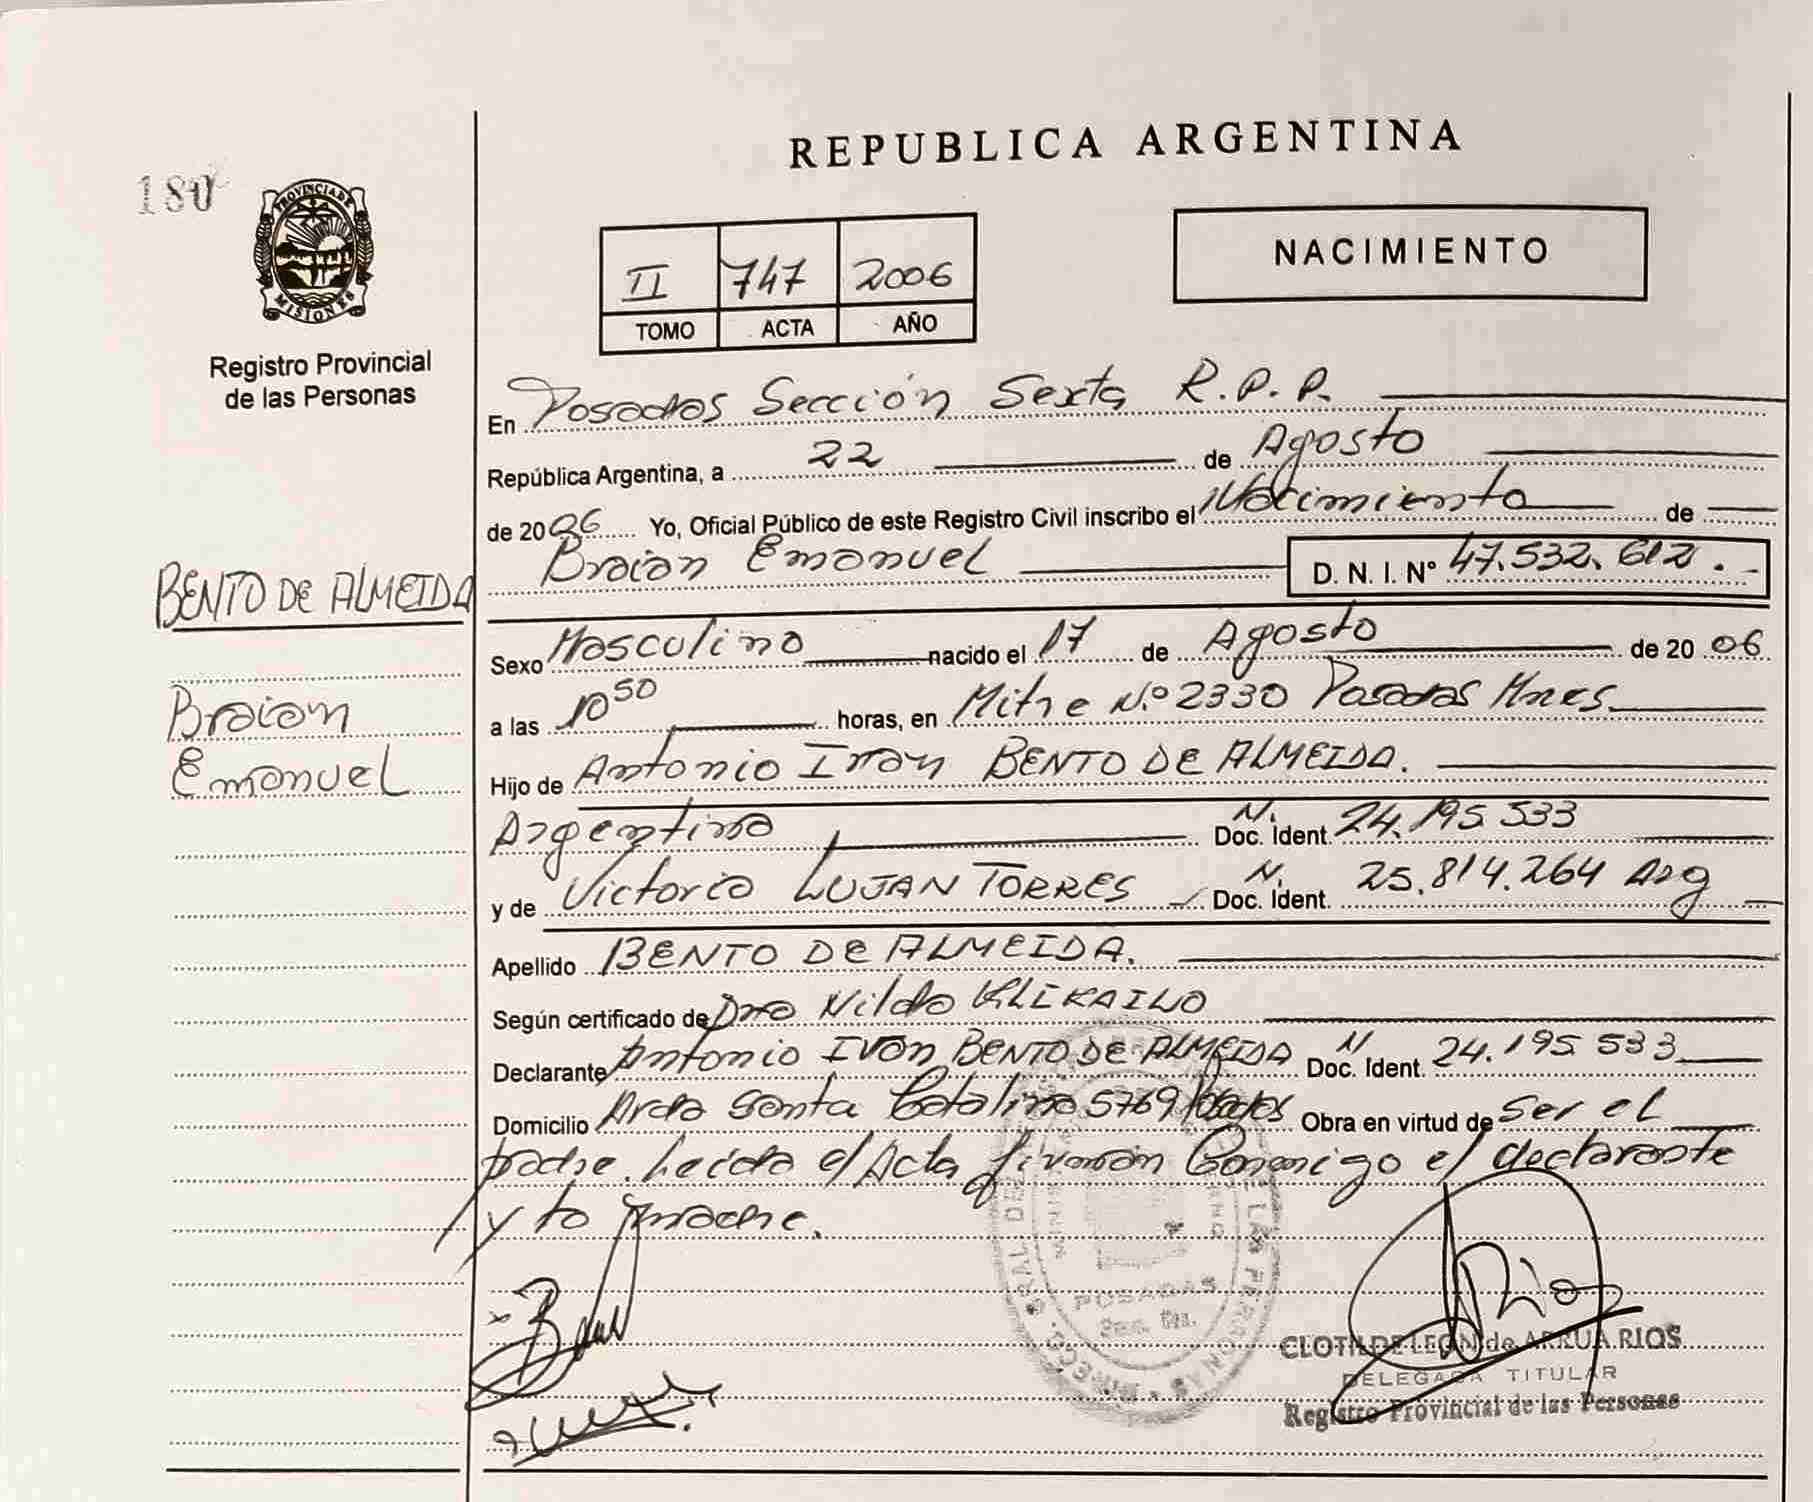 REPUBLICA ARGENTINA
180
PROVINCIA DE
MISIONES
Registro Provincial
de las Personas
II 747 2006
TOMO ACTA AÑO
NACIMIENTO
En Posadas Sección Sexta R.P.P.
República Argentina, a 22 de Agosto
de 2006 Yo, Oficial Público de este Registro Civil inscribo el Nacimiento de
Braian Emanuel D. N. I. N° 47.532.612.-
BENTO DE ALMEIDA
Braian
Emanuel
Sexo Masculino nacido el 17 de Agosto de 2006
a las 10 50 horas, en Mitre N.º 2330 Posadas Mnes.
Hijo de Antonio Ivan BENTO DE ALMEIDA.
Argentino N. Doc. Ident. 24.195.533
y de Victoria LUJAN TORRES N. Doc. Ident. 25.814.264 Arg
Apellido BENTO DE ALMEIDA.
Según certificado de Dra Nilda
Declarante Antonio Ivan BENTO DE ALMEIDA N Doc. Ident. 24.195.533
Domicilio Avda Santa Catalina 5769 Posadas Obra en virtud de Ser el
padre. Leida el Acta firman Conmigo el declarante
y la madre.
POSADAS
CLOTILDE LEON de ARRUA RIOS
DELEGADA TITULAR
Registro Provincial de las Personas